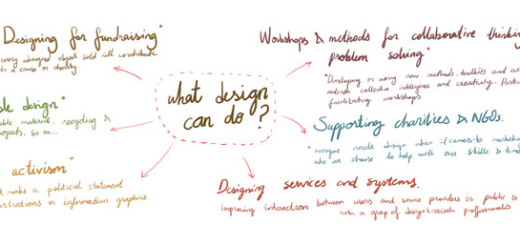 Designing for fundraising"
every designed object sold will contribute
to a cause or charity
ble design"
able material, recycling &
projects, so on...
activism"
make a political statement
illustrations or information graphics.
what design
can do?
Workshops & methods for collaborative thinking
problem solving"
"Developing or using new methods, toolkits and
unleash collective intelligence and creativity.
facilitating workshops
Supporting charities & NGOs.
"everyone needs design when it comes to marketing
who we choose to help with our skills &
Designing services and systems.
Improving interaction between users and service providers in public
with a group of design-research professionals